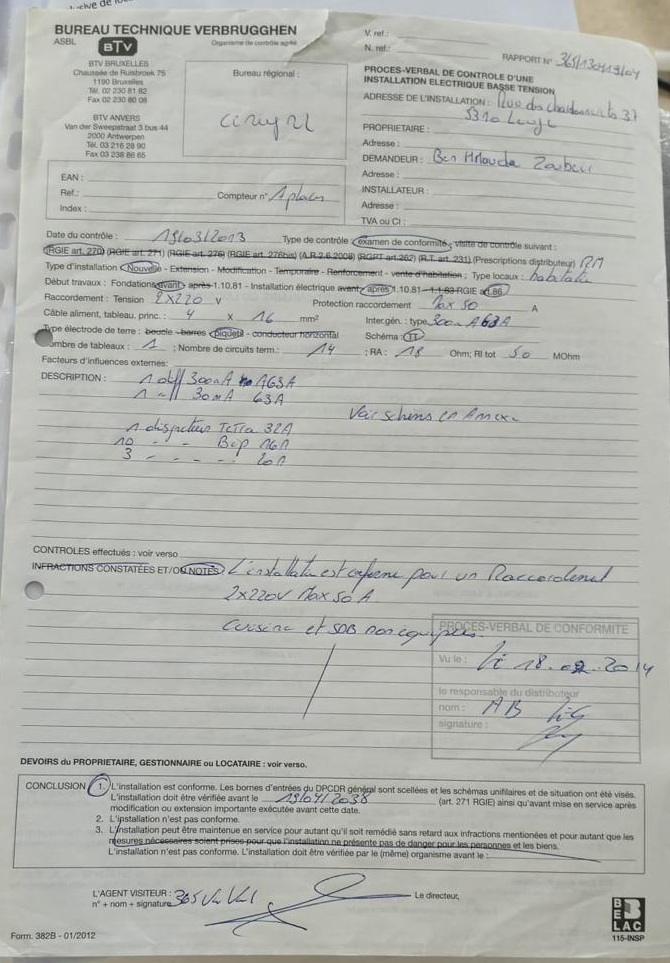 BUREAU TECHNIQUE VERBRUGGHEN
ASBL BTV Organisme de contrôle agréé
BTV BRUXELLES
Chaussée de Ruisbroek 75
1190 Bruxelles
Tél. 02 230 81 82
Fax 02 230 80 08
BTV ANVERS
Van der Sweepstraat 3 bus 44
2000 Antwerpen
Tél. 03 216 28 90
Fax 03 238 86 65
Bureau régional :
V. ref.:
N. ref.:
RAPPORT N°
PROCES-VERBAL DE CONTROLE D'UNE
INSTALLATION ELECTRIQUE BASSE TENSION
ADRESSE DE L'INSTALLATION : Rue des 37
5310
PROPRIETAIRE :
Adresse :
DEMANDEUR : Ben
Adresse :
INSTALLATEUR :
Adresse :
TVA ou CI :
EAN :
Ref.: Compteur n° A placer
Index :
Date du contrôle : 19/03/2013 Type de contrôle : examen de conformité, visite de contrôle suivant :
(RGIE art. 270) (RGIE art. 271) (RGIE art. 276) (RGIE art. 276bis) (A.R.2.6.2008) (RGPT art.262) (R.T. art. 231) (Prescriptions distributeur)
Type d'installation : Nouvelle - Extension - Modification - Temporaire - Renforcement - vente d'habitation ; Type locaux : habitation
Début travaux : Fondations avant - après 1.10.81 - Installation électrique avant - après 1.10.81
Raccordement : Tension 2x220 V Protection raccordement Max 50 A
Câble aliment, tableau, princ. : 4 x 16 mm² Inter.gén. : type 300mA 63A
Type électrode de terre : boucle - barres - piquets - conducteur horizontal Schéma : TT
Nombre de tableaux : 1 ; Nombre de circuits term.: 14 ; RA : 18 Ohm; RI tot 50 MOhm
Facteurs d'influences externes:
DESCRIPTION : 1 diff 300mA A63A
1 - 30mA 63A
Voir schéma en Annexe
1 disjoncteur Tetra 32A
10 - - Bip 16A
3 - - - - 20A
CONTROLES effectués : voir verso
INFRACTIONS CONSTATEES ET/OU NOTES : L'installation est conforme pour un Raccordement
2x220V Max 50 A
Cuisine et SDB non équipées.
PROCES-VERBAL DE CONFORMITE
Vu le : 2014
le responsable du distributeur
nom : AB
signature :
DEVOIRS du PROPRIETAIRE, GESTIONNAIRE ou LOCATAIRE : voir verso.
CONCLUSION : 1. L'installation est conforme. Les bornes d'entrées du DPCDR général sont scellées et les schémas unifilaires et de situation ont été visés.
L'installation doit être vérifiée avant le 19/04/2038 (art. 271 RGIE) ainsi qu'avant mise en service après
modification ou extension importante exécutée avant cette date.
2. L'installation n'est pas conforme.
3. L'installation peut être maintenue en service pour autant qu'il soit remédié sans retard aux infractions mentionnées et pour autant que les
mesures nécessaires soient prises pour que l'installation ne présente pas de danger pour les personnes et les biens.
L'installation n'est pas conforme. L'installation doit être vérifiée par le (même) organisme avant le :
L'AGENT VISITEUR :
n° + nom + signature
Le directeur,
Form. 382B - 01/2012
BELAC
115-INSP